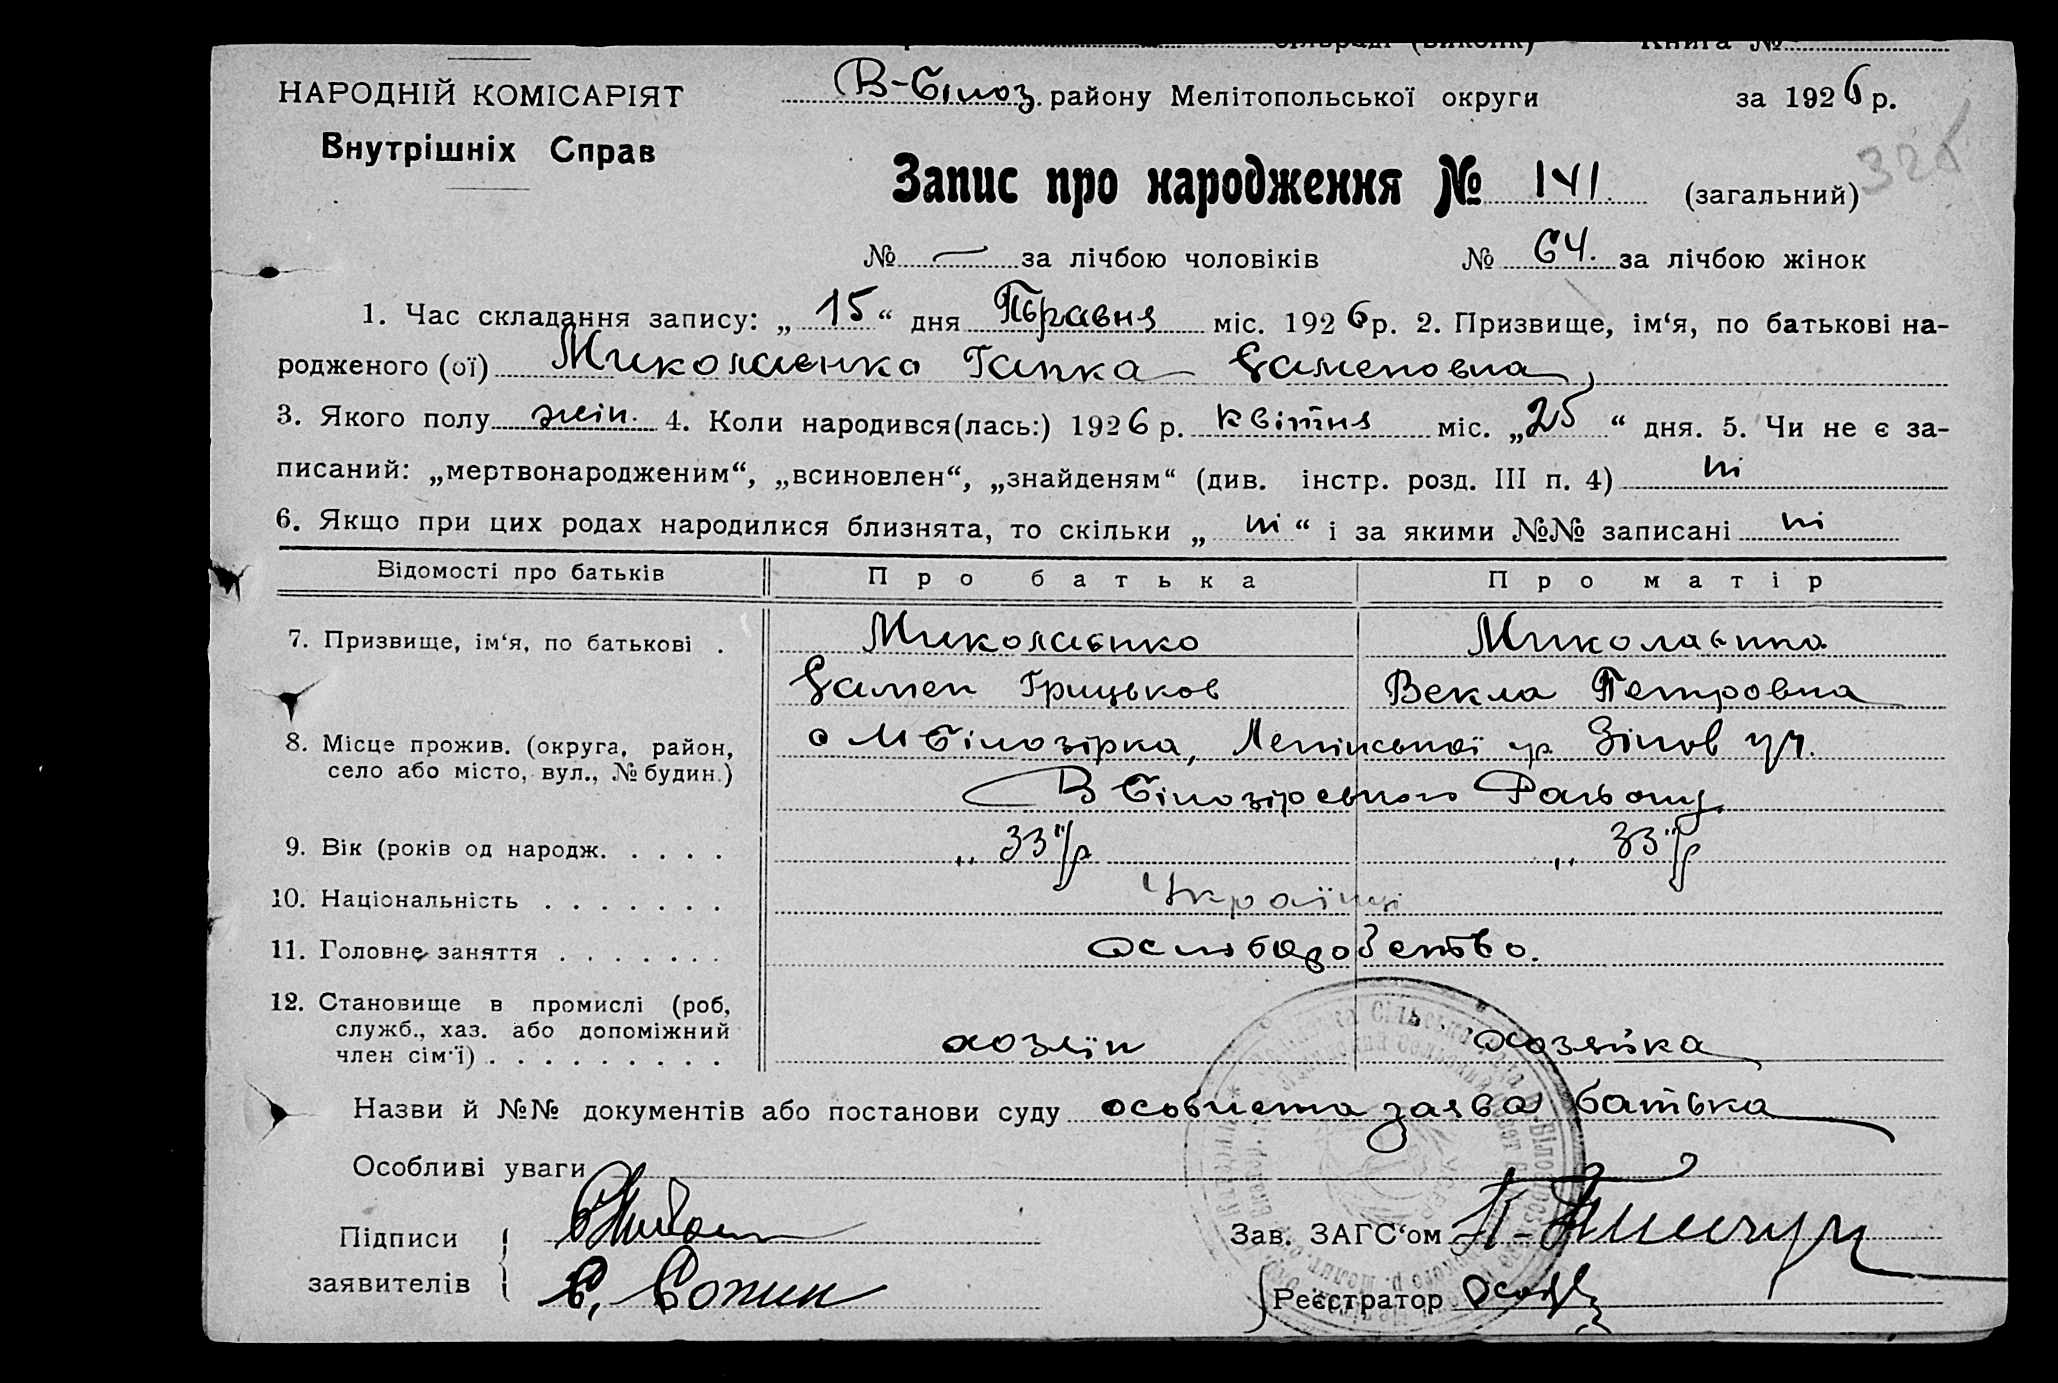 сільраді (виконк) Книга №
НАРОДНІЙ КОМІСАРІЯТ
Внутрішніх Справ
В-Білоз. району Мелітопольської округи за 1926 р.
326
Запис про народження № 141. (загальний)
№ — за лічбою чоловіків № 64. за лічбою жінок
1. Час складання запису: „15“ дня Травня міс. 1926 р. 2. Призвище, ім‘я, по батькові на-
родженого (ої) Миколаенко Гапка Саменовна
3. Якого полу жін. 4. Коли народився(лась:) 1926 р. квітня міс. „25“ дня. 5. Чи не є за-
писаний: „мертвонародженим“, „всиновлен“, „знайденям“ (див. інстр. розд. III п. 4) ні
6. Якщо при цих родах народилися близнята, то скільки „ні“ і за якими №№ записані ні
Відомості про батьків Про батька Про матір
7. Призвище, ім‘я, по батькові . Миколаєнко Миколаєнко
Самен Грицьков Векла Петровна
8. Місце прожив. (округа, район,
село або місто, вул., № будин.)
М Білозірка, Ленінської
В Білозірського Району
9. Вік (років од народж. . . . . „33 р „33 р
10. Національність . . . . . . . Українці
11. Головне заняття . . . . . . .
12. Становище в промислі (роб,
служб., хаз. або допоміжний
член сім‘ї) . . . . . . . . . хозяїн хозяйка
Назви й №№ документів або постанови суду особиста заява батька
Особливі уваги
Підписи
заявителів
Зав. ЗАГС‘ом
Реєстратор